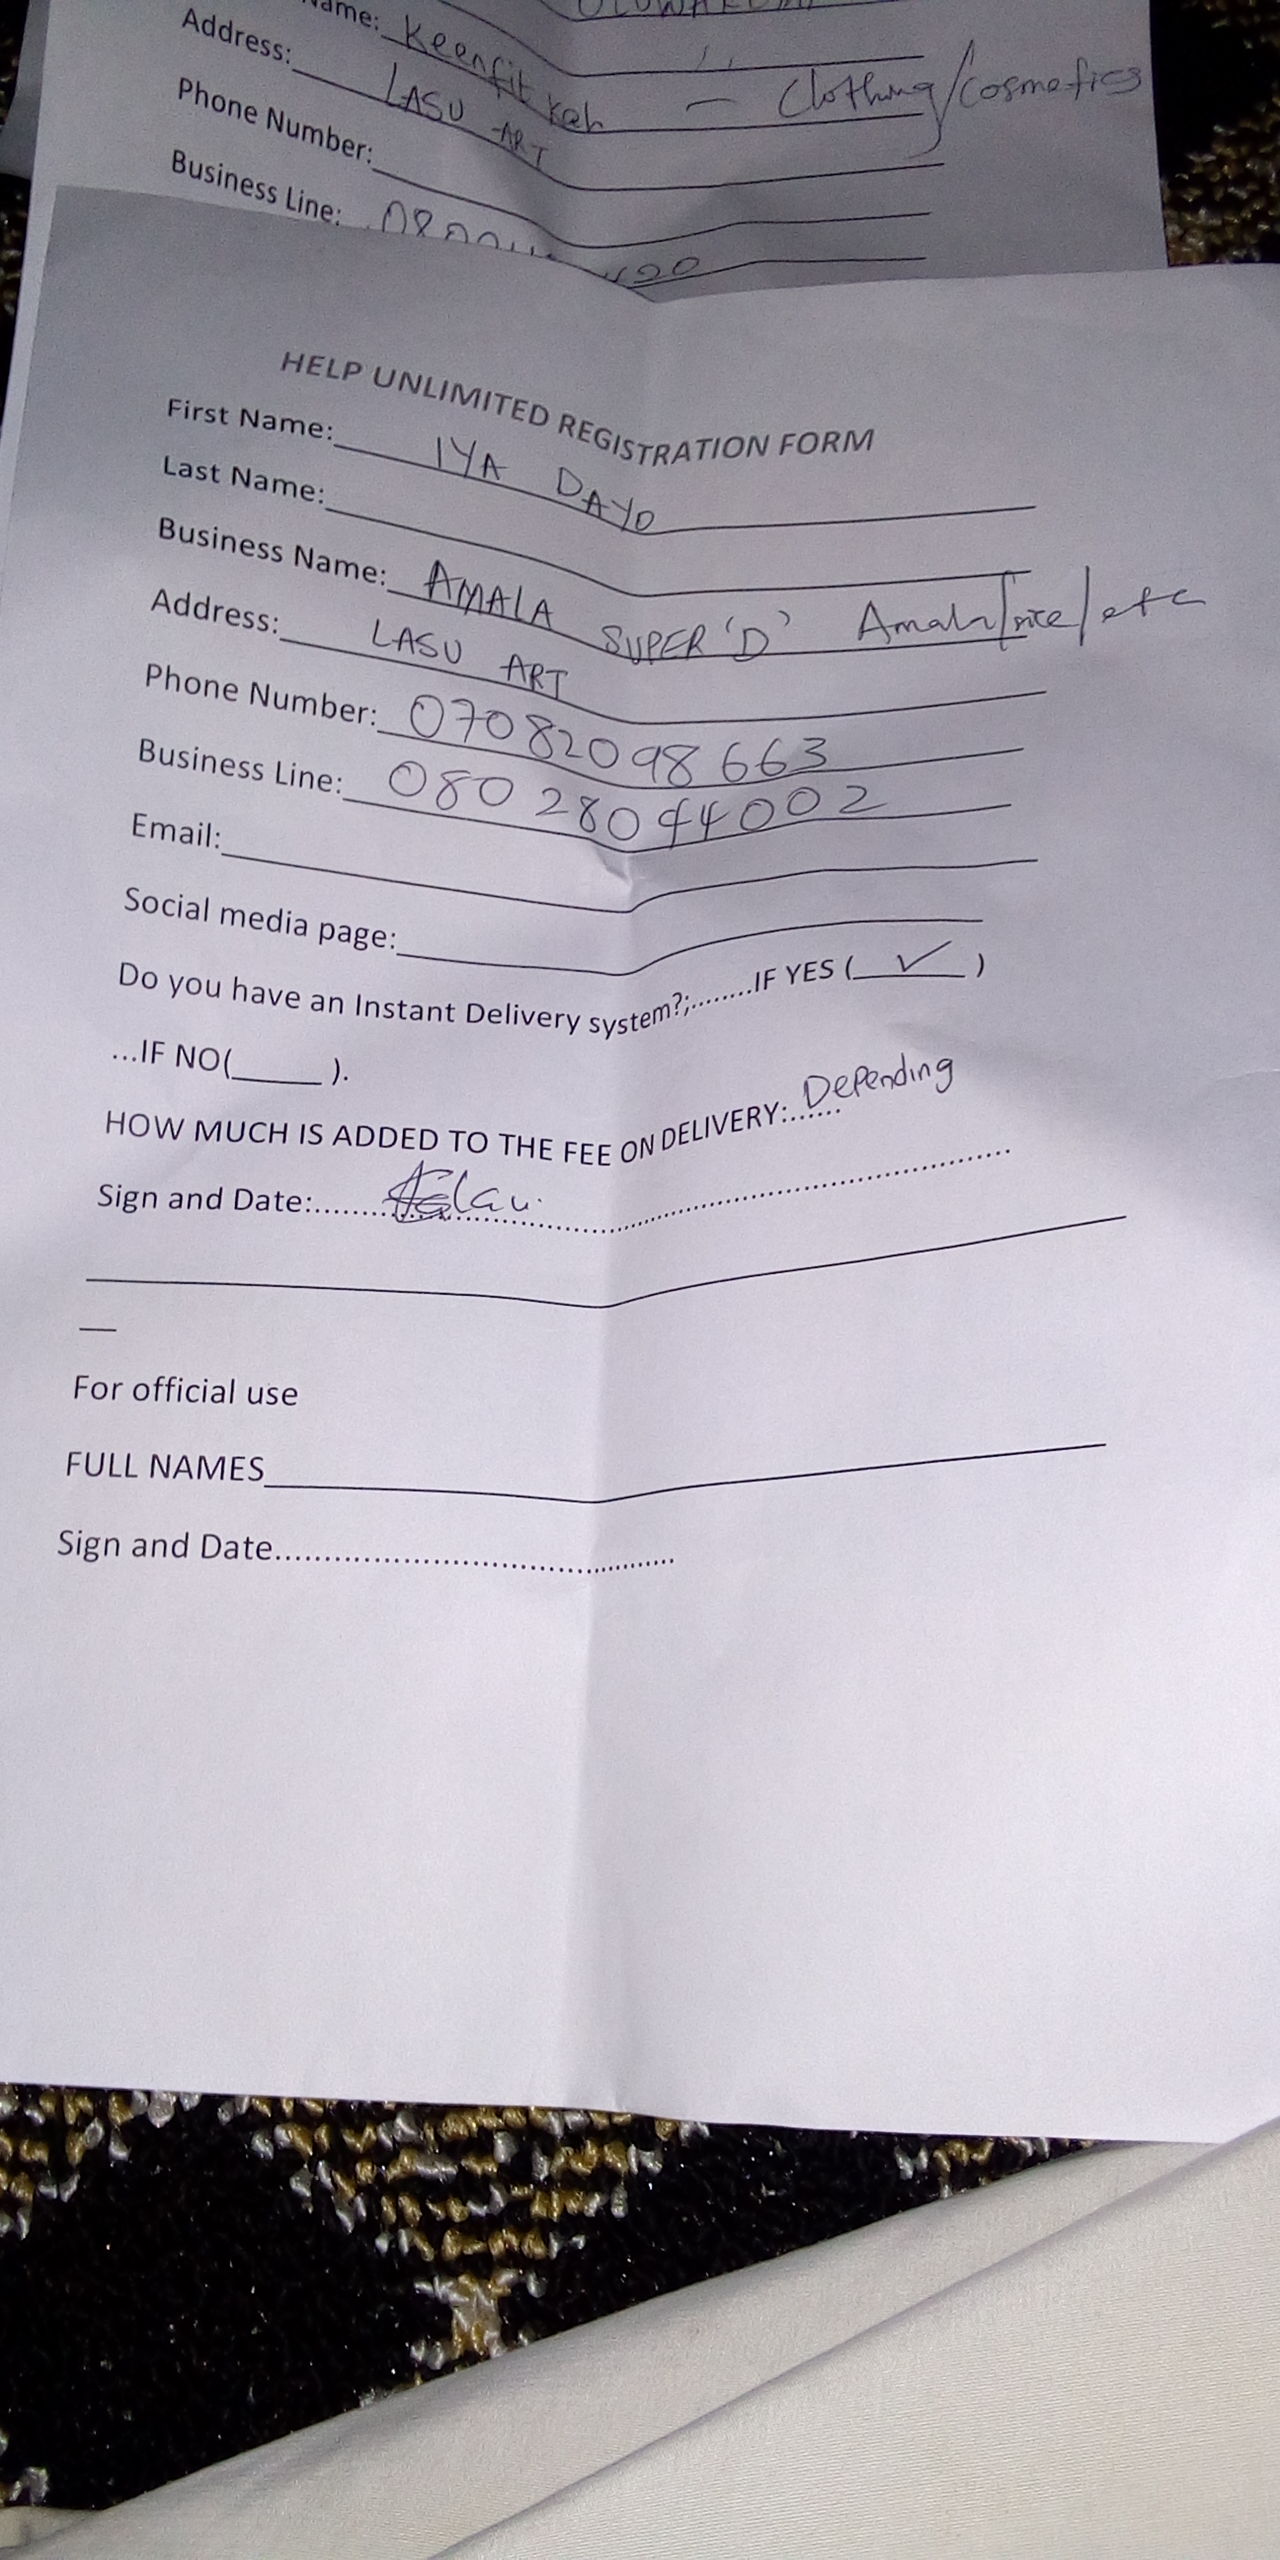 Name: Keenfit Kah — Clothing/Cosmetics
Address: LASU ART
Phone Number:
Business Line:
HELP UNLIMITED REGISTRATION FORM
First Name: IYA DAYO
Last Name:
Business Name: AMALA SUPER 'D' Amala/rice/etc
Address: LASU ART
Phone Number: 07082098663
Business Line: 08028044002
Email:
Social media page:
Do you have an Instant Delivery system?;........IF YES (✓)
...IF NO(_____ ).
HOW MUCH IS ADDED TO THE FEE ON DELIVERY:...... Depending
Sign and Date:
For official use
FULL NAMES
Sign and Date